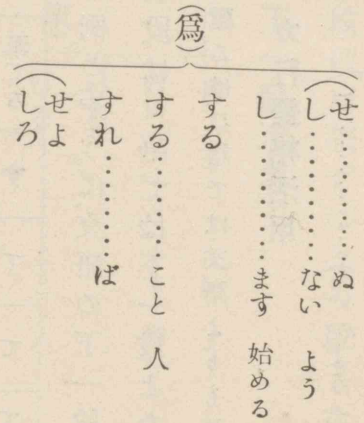 (爲)
せ…………ぬ
し…………ない　よう
し…………ます　始める
する
する…………こと　人
すれ…………ば
せよ
しろ